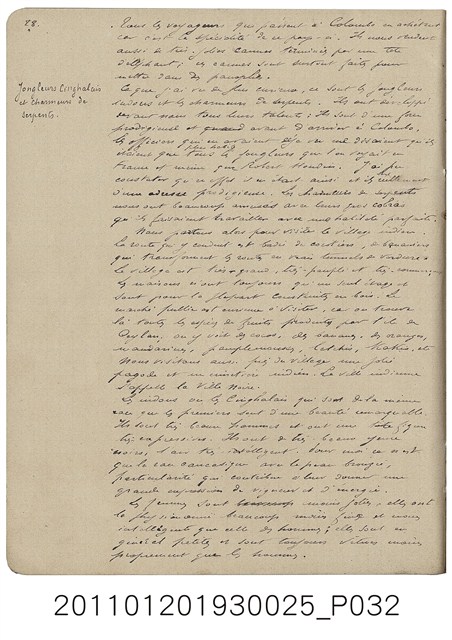 28.
Tous les voyageurs qui passent à Colombo en achètent
car c'est la spécialité de ce pays-ci. Ils nous vendent
aussi de très jolies cannes terminées par une tête
d'éléphant; ces cannes sont surtout faites pour
mettre dans des panoplies.
Jongleurs Cinghalais
et charmeurs de
serpents.
Ce que j'ai vu de plus curieux, ce sont les jongleurs
indous et les charmeurs de serpents. Ils ont développé
devant nous tous leurs talents; ils sont d'une force
prodigieuse et avant d'arriver à Colombo,
les officiers qui en avaient déjà vu me disaient qu'ils
étaient plus habiles que tous les jongleurs que l'on voyait en
France et même que Robert Houdin. J'ai pu
constater qu'en effet il en était ainsi et ils
d'une adresse prodigieuse. Les charmeurs de serpents
nous ont beaucoup amusés avec leurs gros cobras
qu'ils faisaient travailler avec une habileté parfaite.
Nous partons alors pour visiter le village indien.
La route qui y conduit est bordée de cocotiers, de bananiers
qui transforment la route en vrais tunnels de verdure.
Le village est très grand, très peuplé et très
les maisons n'ont toujours qu'un seul étage et
sont pour la plupart construites en bois. Le
marché public est curieux à visiter, car on trouve
là toutes les espèces de fruits produits par l'île de
Ceylan, on y voit des cocos, des bananes, des oranges,
mandarines, pamplemousses, letchis, etc.
Nous visitons aussi près du village une jolie
pagode et un cimetière indien. La ville indienne
s'appelle la Ville Noire.
Les indous ou les Cinghalais qui sont de la même
race que les premiers sont d'une beauté remarquable.
Ils sont très beaux hommes et ont une figure
très expressive. Ils ont de très beaux yeux
noirs, l'air très intelligent. Pour moi ce n'est
que la race caucasique avec la peau bronzée,
particularité qui contribue à leur donner une
grande expression de vigueur et d'énergie.
Les femmes sont moins jolies, elles ont
la physionomie beaucoup moins et moins
intelligente que celle des hommes; elles sont en
général petites et sont toujours vêtues moins
proprement que les hommes.
201101201930025_P032